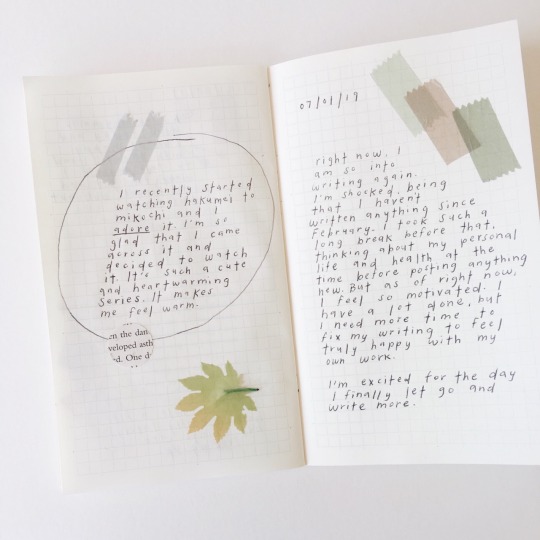 I recently started
watching hakumei to
mikochi and I
adore it. I'm so
glad that I came
across it and
decided to watch
it. It's such a cute
and heartwarming
series. It makes
me feel warm.
n the dar
veloped asth
d. One d
07/01/19
right now, I
am so into
writing again.
I'm shocked, being
that I haven't
written anything since
february. I took such a
long break before that,
thinking about my personal
life and health at the
time before posting anything
new. But as of right now,
I feel so motivated. I
have a lot done, but
I need more time to
fix my writing to feel
truly happy with my
own work.
I'm excited for the day
I finally let go and
write more.